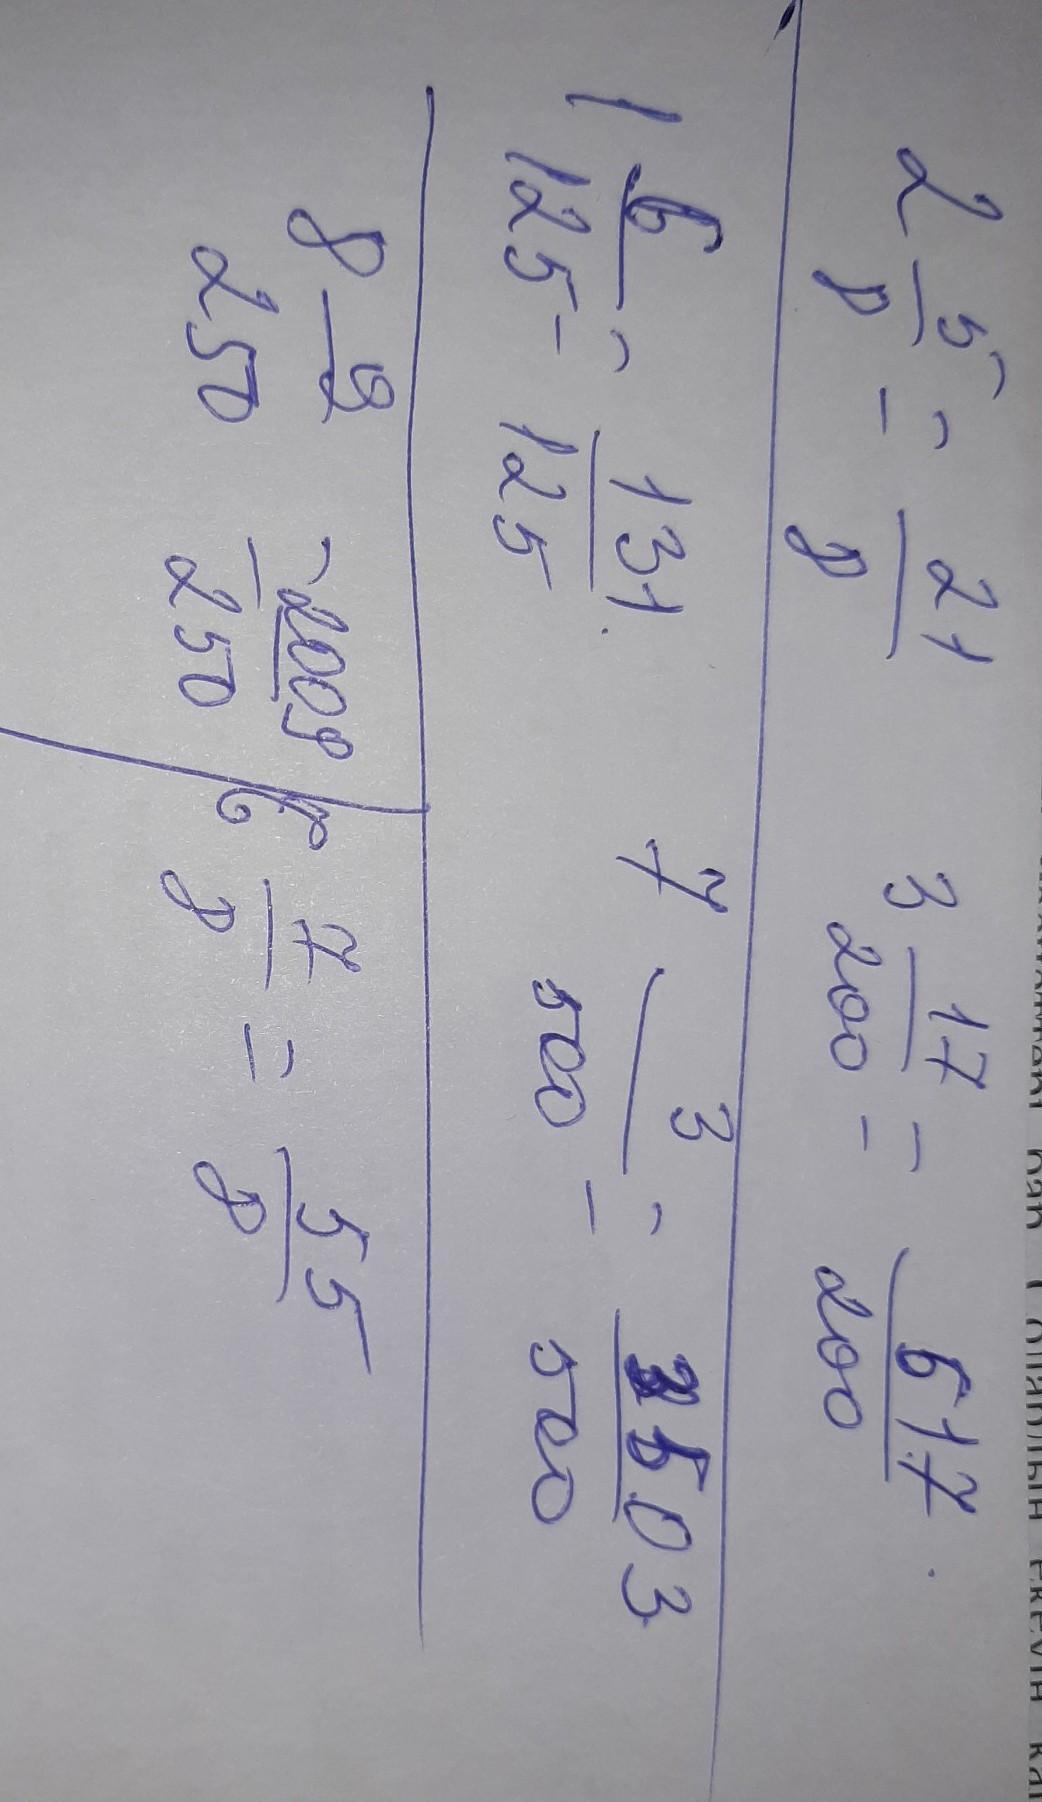 2 5/8 = 21/8    3 17/200 = 617/200.
1 6/125 = 131/125.    7 3/500 = 3503/500
8 9/250 = 2009/250    6 7/8 = 55/8